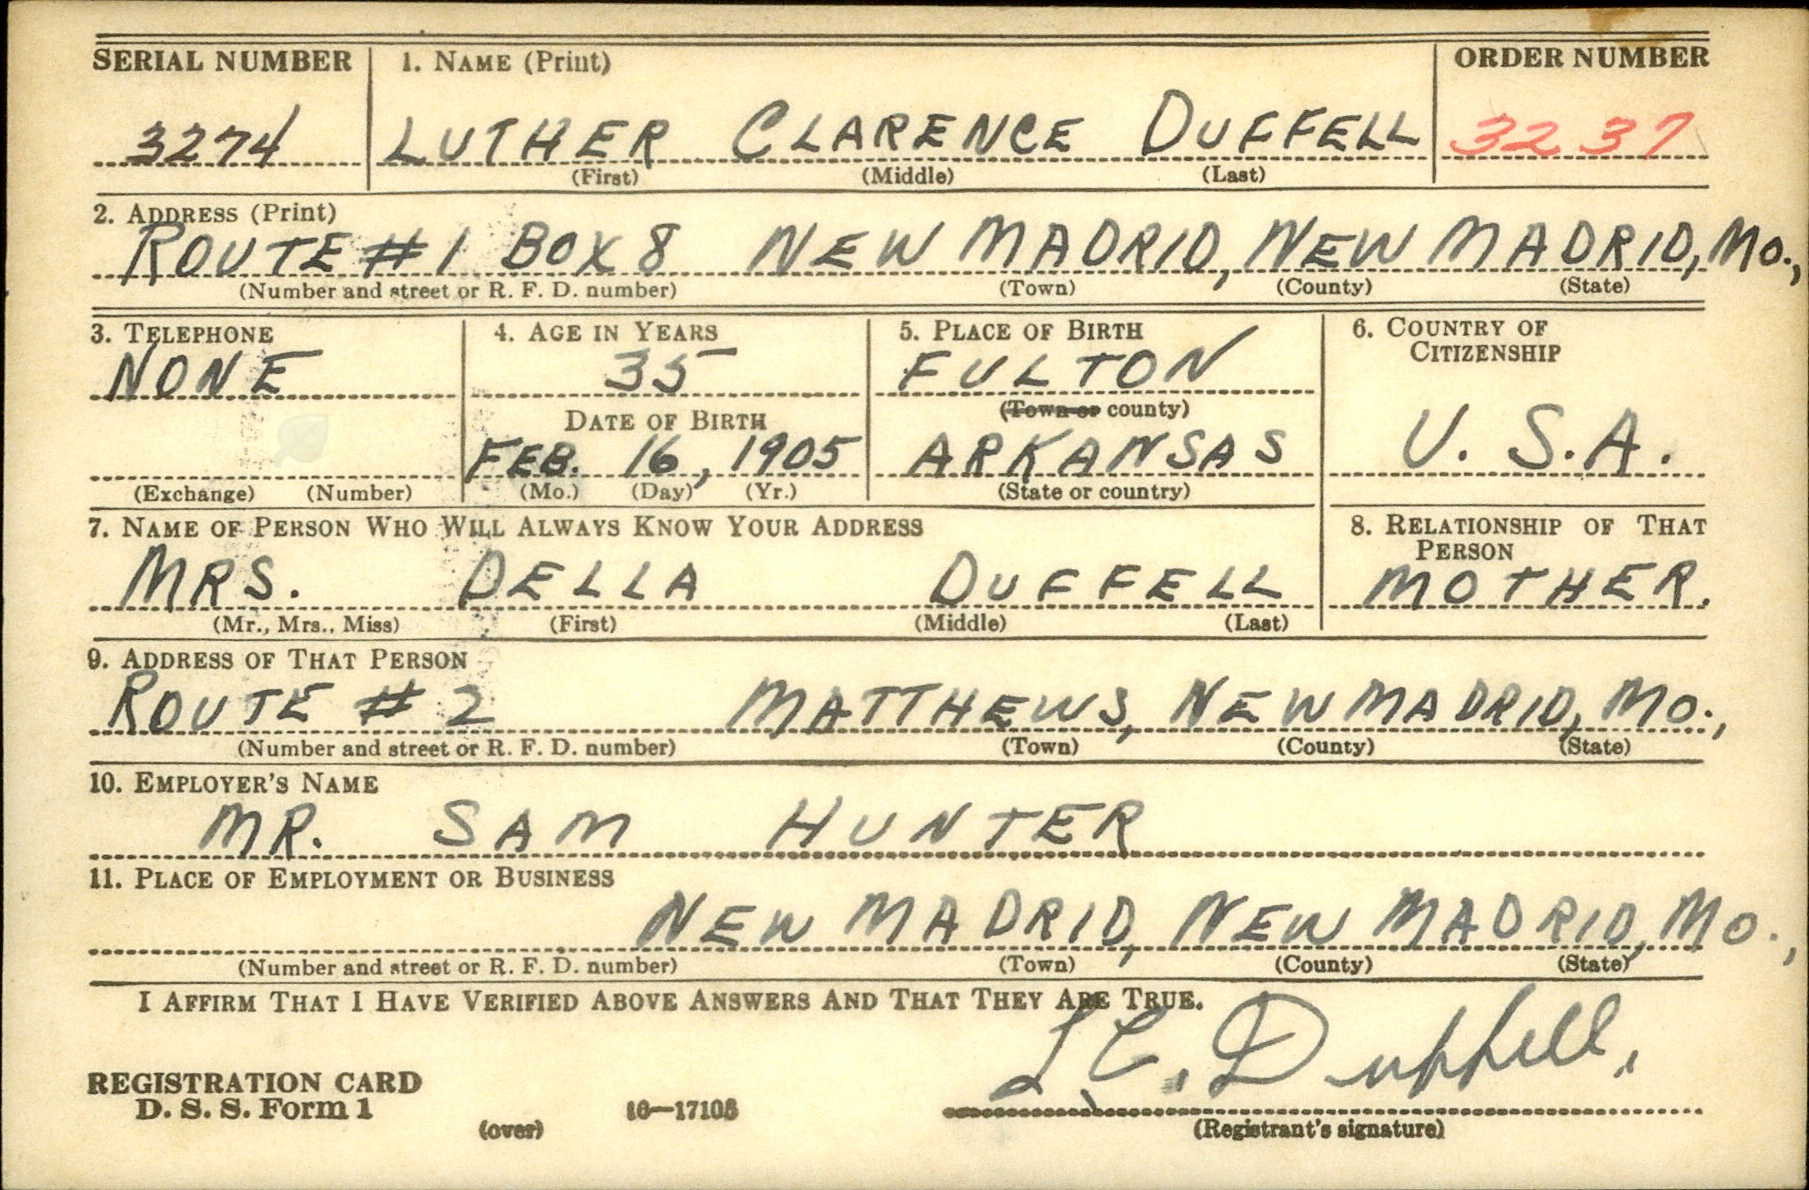 SERIAL NUMBER 1. NAME (Print) ORDER NUMBER
3274 LUTHER CLARENCE DUFFELL 3237
(First) (Middle) (Last)
2. ADDRESS (Print)
ROUTE #1 BOX 8 NEW MADRID, NEW MADRID, MO.,
(Number and street or R. F. D. number) (Town) (County) (State)
3. TELEPHONE 4. AGE IN YEARS 5. PLACE OF BIRTH 6. COUNTRY OF
CITIZENSHIP
NONE 35 FULTON
DATE OF BIRTH (Town or county)
FEB. 16, 1905 ARKANSAS U. S. A.
(Exchange) (Number) (Mo.) (Day) (Yr.) (State or country)
7. NAME OF PERSON WHO WILL ALWAYS KNOW YOUR ADDRESS 8. RELATIONSHIP OF THAT
PERSON
MRS. DELLA DUFFELL MOTHER.
(Mr., Mrs., Miss) (First) (Middle) (Last)
9. ADDRESS OF THAT PERSON
ROUTE #2 MATTHEWS, NEW MADRID, MO.,
(Number and street or R. F. D. number) (Town) (County) (State)
10. EMPLOYER'S NAME
MR. SAM HUNTER
11. PLACE OF EMPLOYMENT OR BUSINESS
NEW MADRID, NEW MADRID, MO.,
(Number and street or R. F. D. number) (Town) (County) (State)
I AFFIRM THAT I HAVE VERIFIED ABOVE ANSWERS AND THAT THEY ARE TRUE.
L. C. Duffell,
REGISTRATION CARD
D. S. S. Form 1 16—17105
(over) (Registrant's signature)